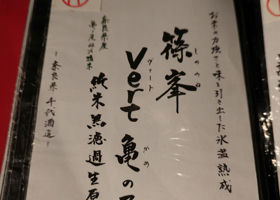 お米の力強さと味を引き出した氷温熟成
篠峯
しのみね
Vert 亀の
ヴェール
かめ
純米無濾過生原
奈良県産
～奈良県 千代酒造～